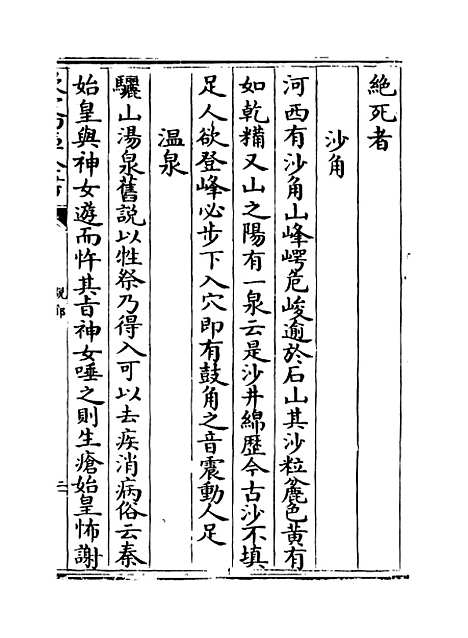 絶死者
沙角
河西有沙角山峰崿危峻逾於石山其沙粒麄色黄有
如乾糒又山之陽有一泉云是沙井綿歷今古沙不填
足人欲登峰必步下入穴即有鼓角之音震動人足
温泉
驪山湯泉舊説以牲祭乃得入可以去疾消病俗云秦
始皇與神女遊而忤其㫖神女唾之則生瘡始皇怖謝